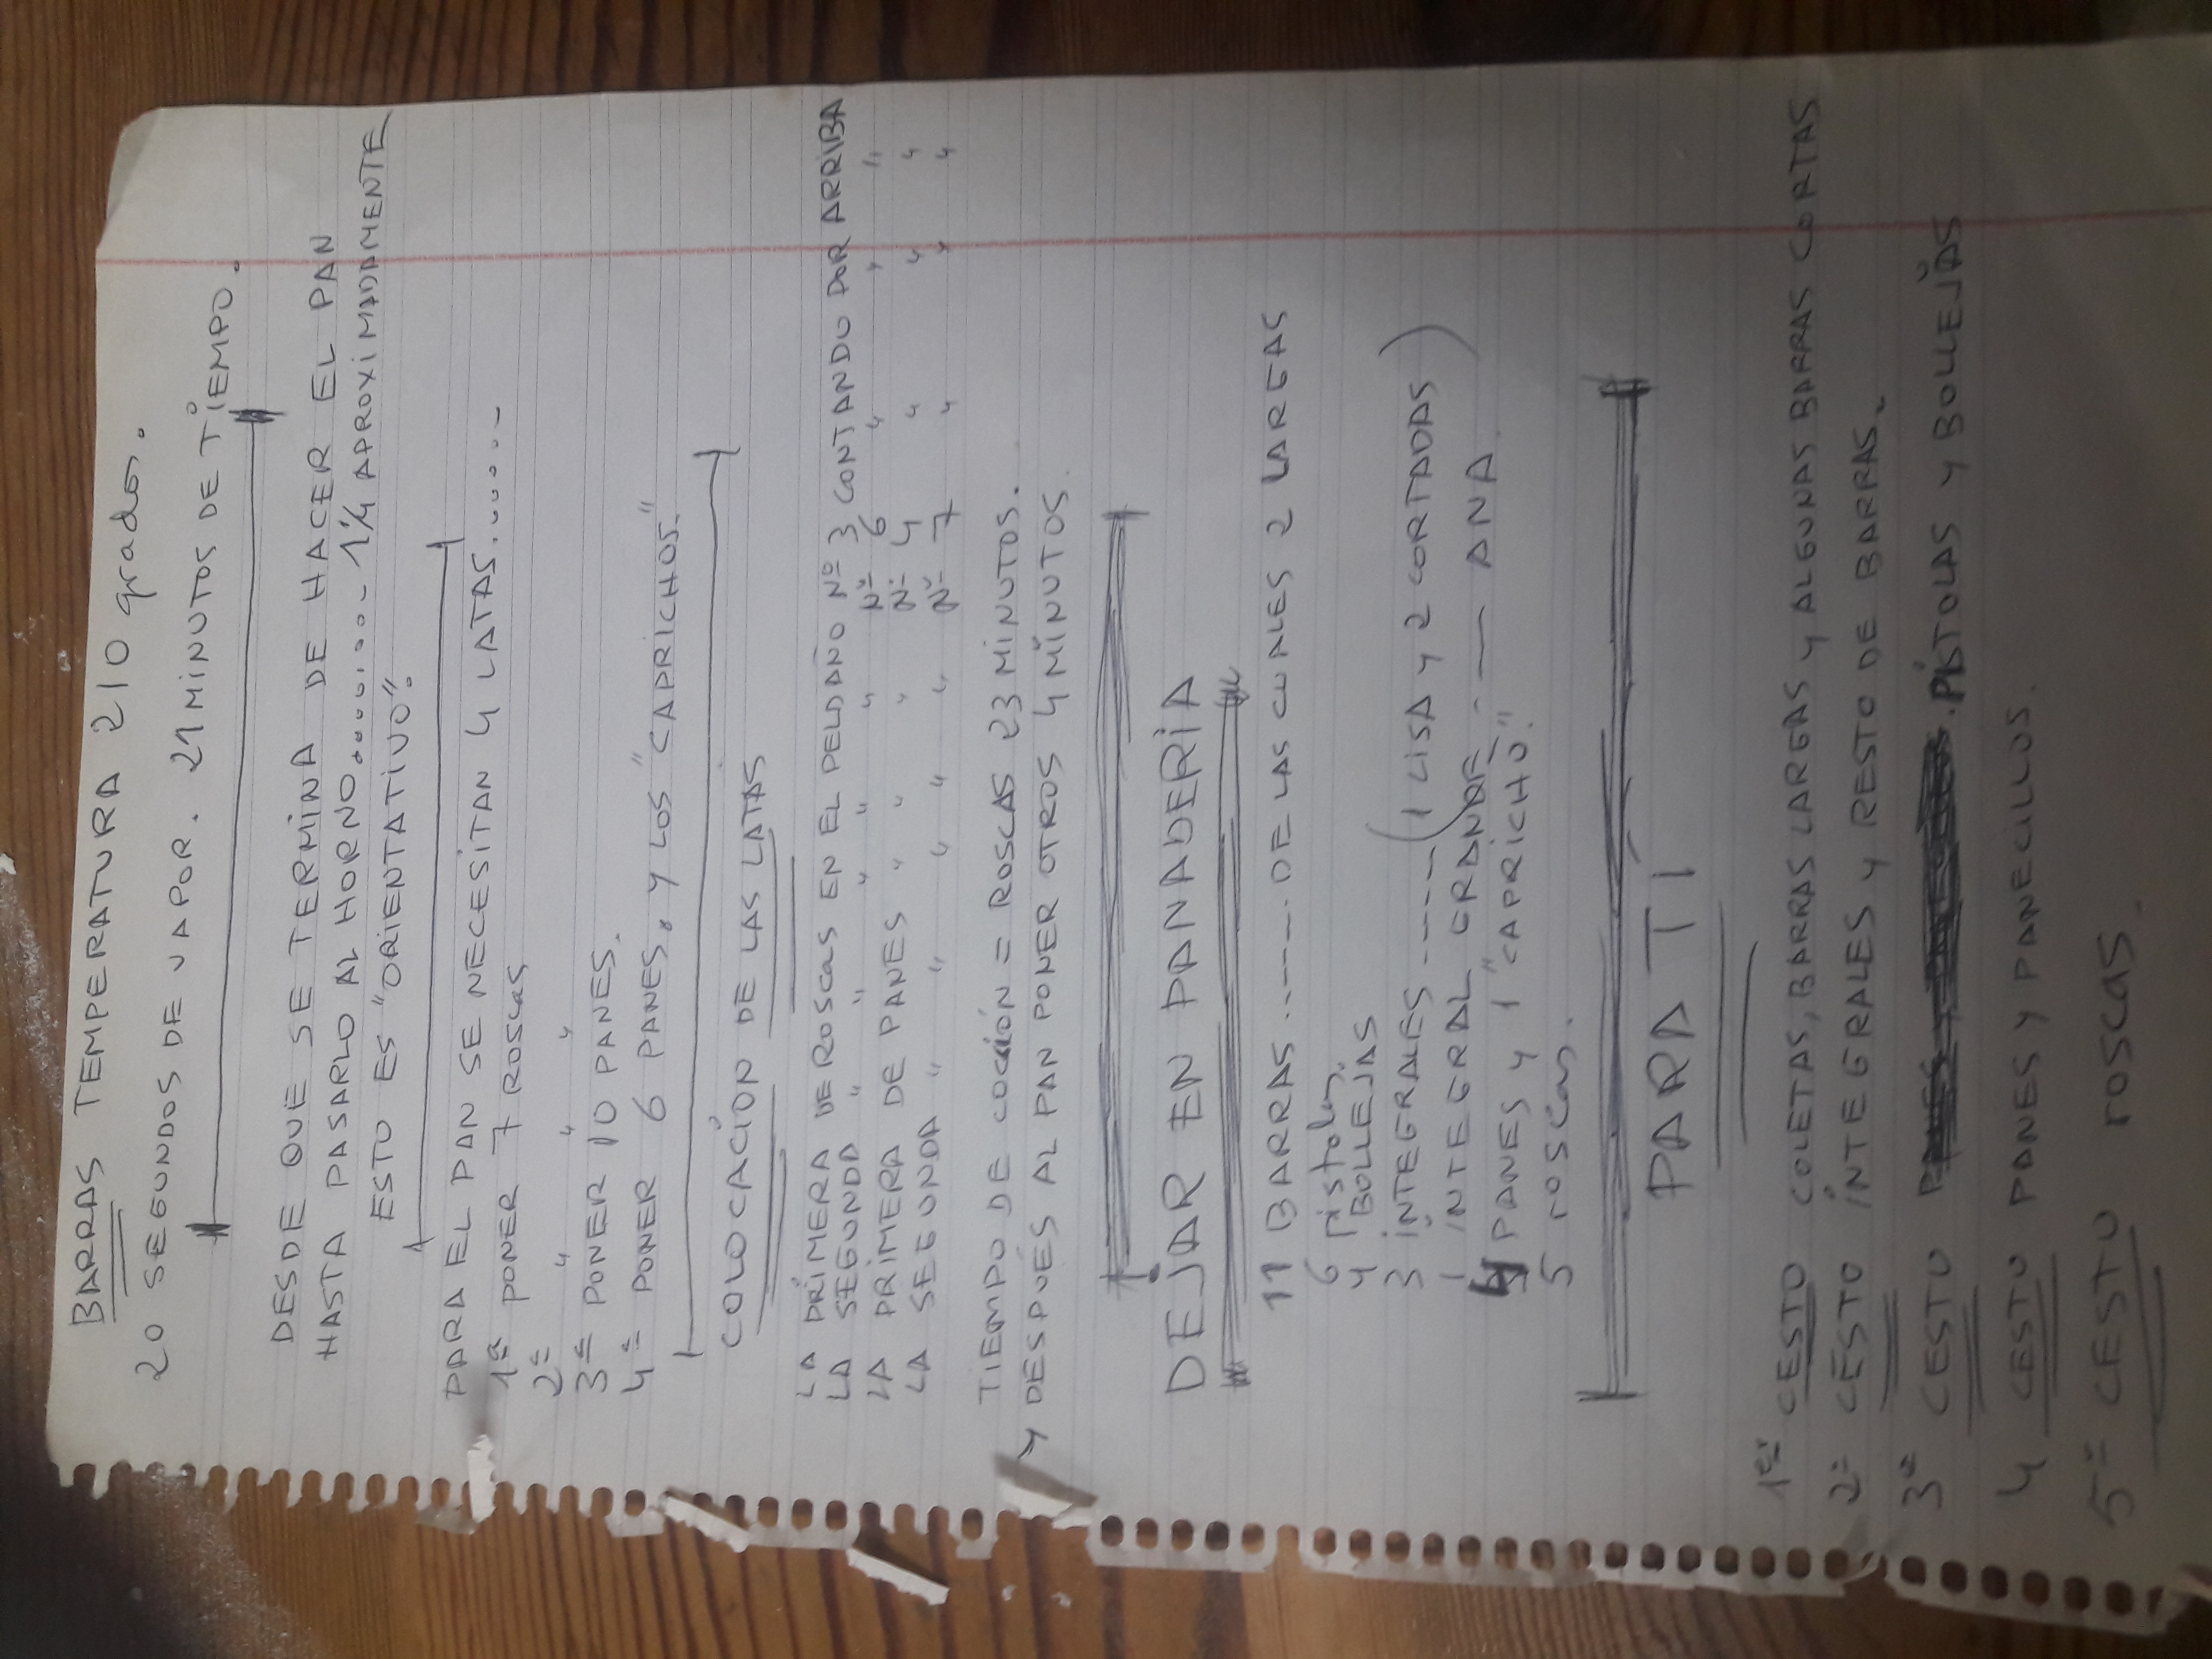 BARRAS TEMPERATURA 210 grados.
20 SEGUNDOS DE VAPOR. 21 MINUTOS DE TIEMPO.
DESDE QUE SE TERMINA DE HACER EL PAN
HASTA PASARLO AL HORNO......... 1¼ APROXIMADAMENTE
ESTO ES "ORIENTATIVO".
PARA EL PAN SE NECESITAN 4 LATAS........
1ª PONER 7 ROSCAS
2ª " " "
3ª PONER 10 PANES.
4ª PONER 6 PANES, Y LOS "CAPRICHOS".
COLOCACIÓN DE LAS LATAS
LA PRIMERA DE ROSCAS EN EL PELDAÑO Nº 3 CONTANDO POR ARRIBA
LA SEGUNDA " " " " " Nº 6 " " "
LA PRIMERA DE PANES " " " Nº 4 " " "
LA SEGUNDA " " " " " Nº 7 " " "
TIEMPO DE COCCIÓN = ROSCAS 23 MINUTOS.
Y DESPUÉS AL PAN PONER OTROS 4 MINUTOS.
DEJAR EN PANADERIA
11 BARRAS ........ DE LAS CUALES 2 LARGAS
6 Pistolas.
4 BOLLEJAS
3 INTEGRALES ------ (1 LISA Y 2 CORTADAS)
1 INTEGRAL GRANDE - — ANA.
4 PANES Y 1 "CAPRICHO".
5 roscas.
PARA TI
1er CESTO COLETAS, BARRAS LARGAS Y ALGUNAS BARRAS CORTAS
2º CESTO INTEGRALES Y RESTO DE BARRAS.
3º CESTO PISTOLAS Y BOLLEJAS
4 CESTO PANES Y PANECILLOS.
5º CESTO roscas.